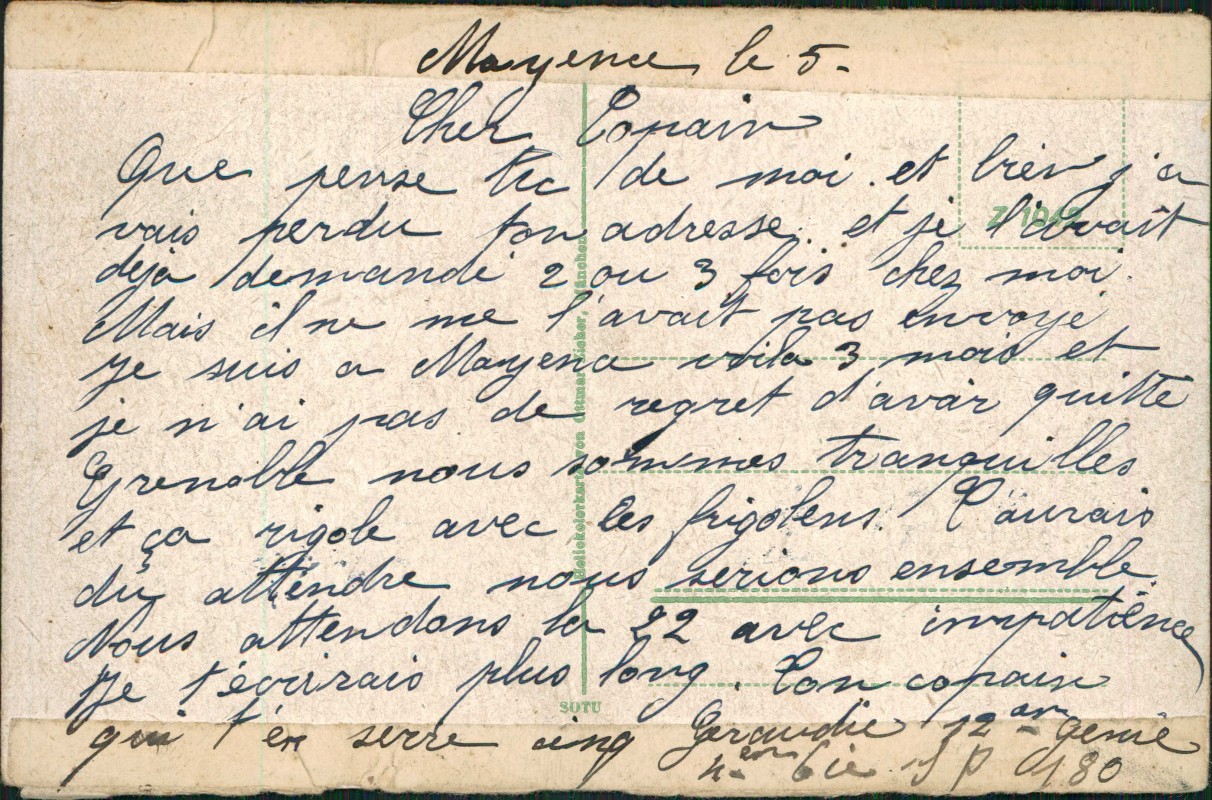 Mayence le 5-
Cher Copain
Que pense tu de moi. et bien j'a
vais perdu ton adresse. et je l'avait
deja demandé 2 ou 3 fois chez moi.
Mais il ne me l'avait pas envoyé
je suis a Mayence voila 3 mois et
je n'ai pas de regret d'avoir quitte
Grenoble nous sommes tranquilles
et ça rigole avec les frigolens. T'aurais
du attendre nous serions ensemble.
Nous attendons la 22 avec impatience
Je t'écrirais plus long. Ton copain
qui t'en serre cinq Geraudie 12 genie
4em Cie S P 180
SOTU